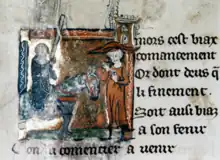 mors cest biax
comancement
Or dont deus q
li finement.
Soit ausi biax
a son fenir
Con au comencier a venir